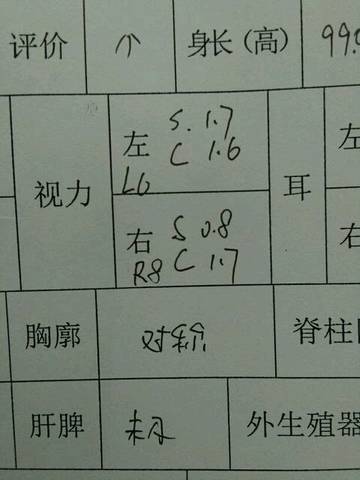 评价 个 身长(高) 99.
视力 左 S. 1.7
C 1.6
L6
耳 左
右 S 0.8
R8 C 1.7
右
胸廓 对称 脊柱
肝脾 未及 外生殖器